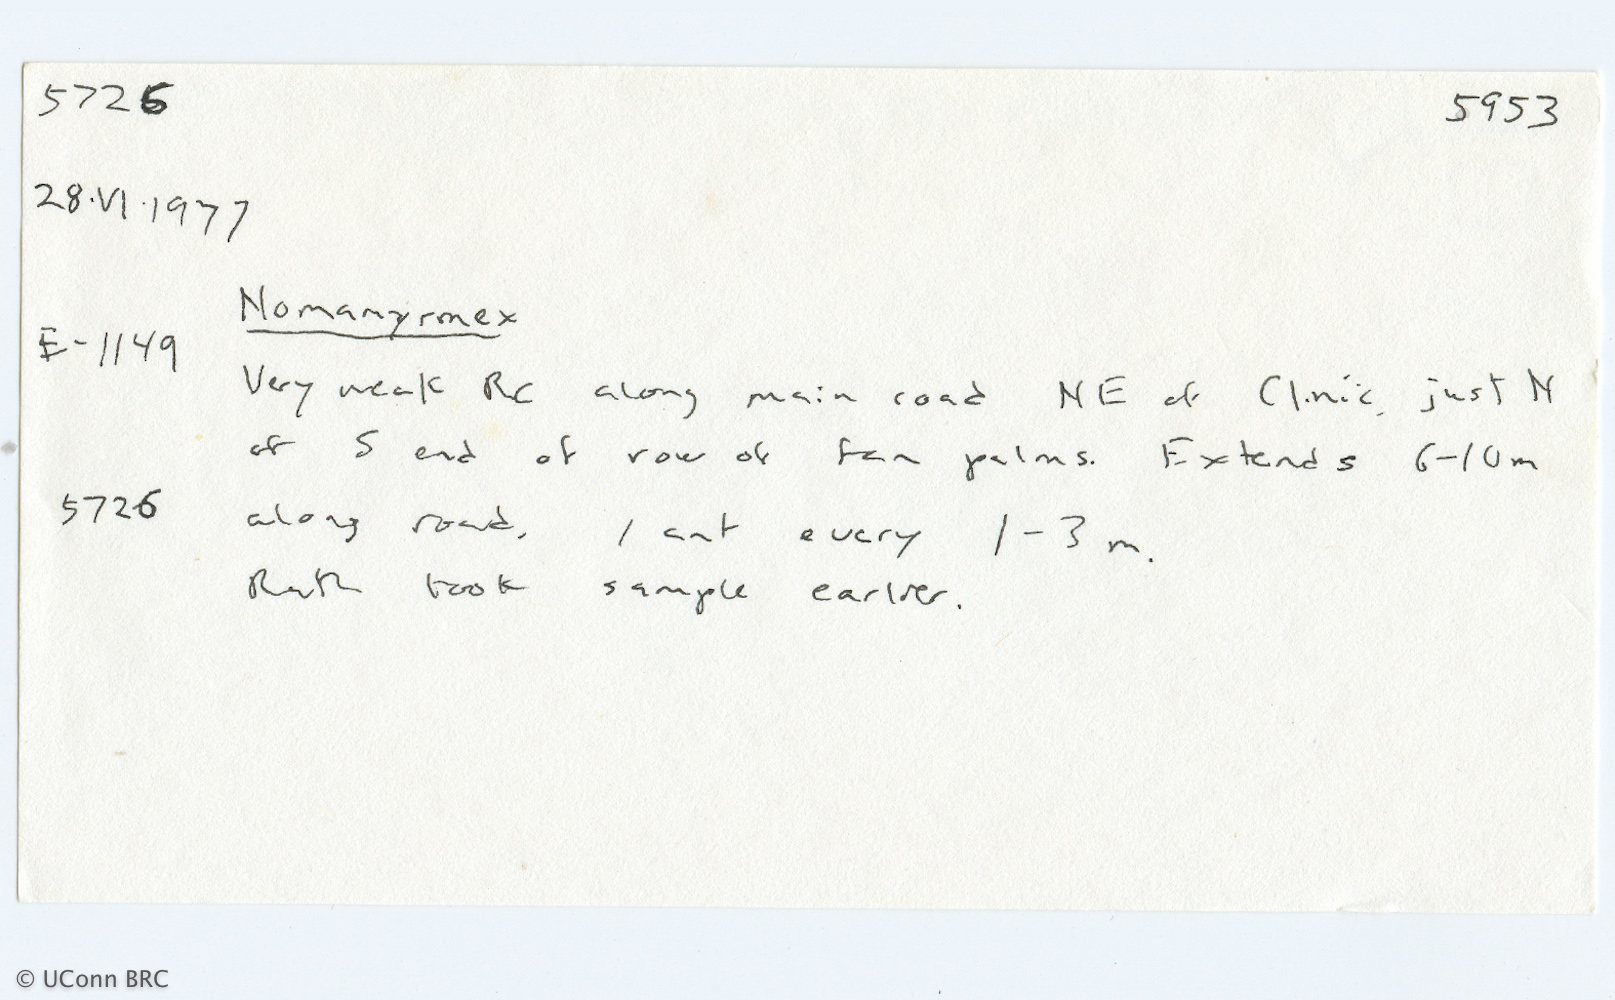 5726 5953
28.VI.1977
Nomamyrmex
E-1149
Very weak RC along main road NE of Clinic, just N
of S end of row of fan palms. Extends 6-10m
5726 along road. 1 ant every 1-3 m.
Ruth took sample earlier.
© UConn BRC